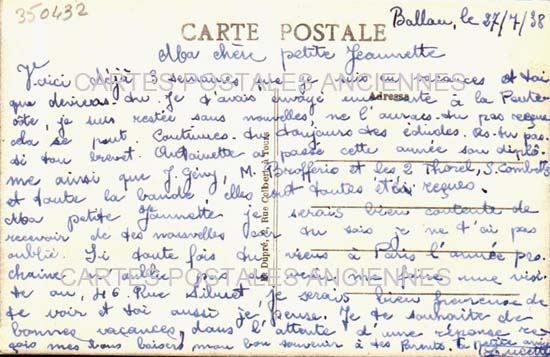 350432
CARTE POSTALE
Ballan, le 27/7/38
Ma chère petite Jeannette
Voici déjà 3 semaines que je suis en vacances et toi
que deviens-tu. Je t'avais envoyé une carte à la Pente
côte, je suis restée sans nouvelles, ne l'auras-tu pas reçue
cela se peut. Continues-tu toujours tes études. As-tu pas
si ton brevet. Antoinette a passé cette année son diplô-
me ainsi que J. Gény, M. Brofferio et les 2 Thorel, S. Combet
et toute la bande, elles sont toutes été reçues.
Adresse
Ma petite Jeannette je serais bien contente de
recevoir de tes nouvelles car tu sais je ne t'ai pas
oublié. Si toute fois tu viens à Paris l'année pro
chaine n'oublie pas de venir me faire une visi-
te au, 46. Rue Sibuet, je serais bien heureuse de
te voir et toi aussi je pense. Je te souhaite de
bonnes vacances, dans l'attente d'une réponse re
çois mes bons baisers mon bon souvenir à tes Parents. Ta petite amie
CARTES POSTALES ANCIENNES
CARTES POSTALES ANCIENNES
Dupré, Rue Colbert, Tours